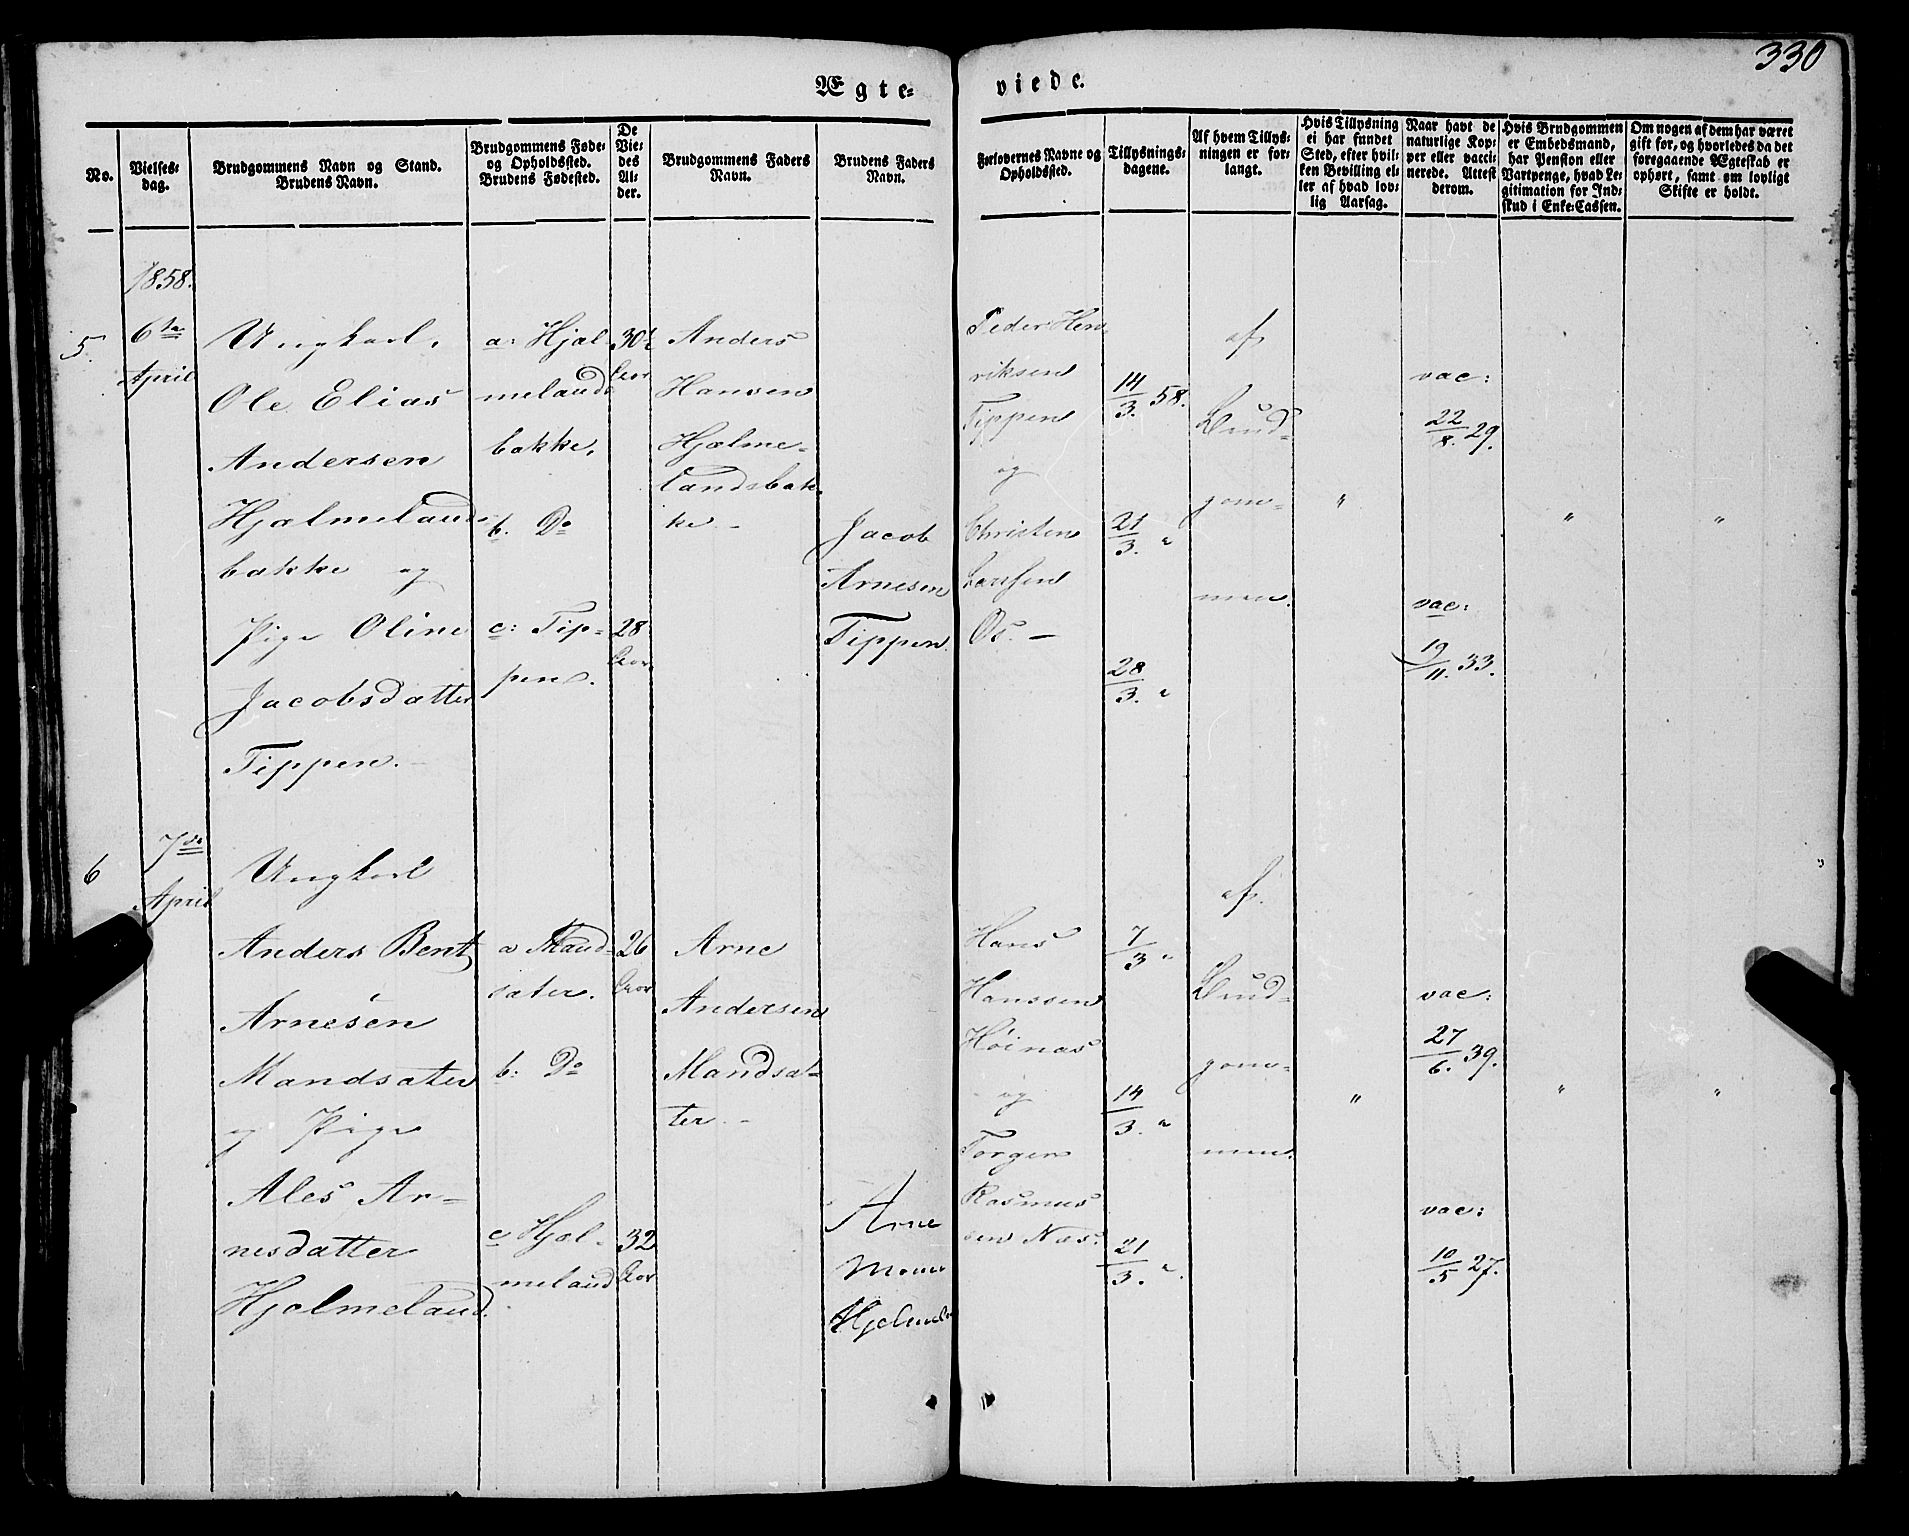 330
Ægte-
viede.
No.
Vielses-
dag.
Brudgommens Navn og Stand.
Brudens Navn.
Brudgommens Føde-
og Opholdssted.
Brudens Fødested.
De
Vie-
des
Al-
der.
Brudgommens Faders
Navn.
Brudens Faders
Navn.
Forlovernes Navne og
Opholdssted.
Tillysnings-
dagene.
Af hvem Tillys-
ningen er for-
langt.
Hvis Tillysning
ei har fundet
Sted, efter hvil-
ken Bevilling el-
ler af hvad lov-
lig Aarsag.
Naar havt de
naturlige Kop-
per eller vacci-
nerede. Attest
derom.
Hvis Brudgommen
er Embedsmand,
har Pension eller
Vartpenge, hvad Le-
gitimation for Ind-
skud i Enke-Cassen.
Om nogen af dem har været
gift før, og hvorledes da det
foregaaende Ægteskab er
ophørt, samt om lovligt
Skifte er holdt.
1858.
5.
6te
April
Ungkarl,
Ole Elias
Andersen
Hjælmelands
bakke og
Pige Oline
Jacobsdatter
Tippen.
a: Hjæl-
melands
bakke,
b. Do
c: Tip-
pen.
30½
Aar
28
Aar
Anders
Hansen
Hjælme-
landsbak-
ke -
Jacob
Arnesen
Tippen.
Peder Hen
riksen
Tippen
og
Christen
Larssen
Os. -
14/3. 58.
21/3. "
28/3. "
af
Brud-
gom-
men.
"
vac:
22/8. 29.
vac:
19/11. 33.
"
"
6
7de
April
Ungkarl
Anders Bent
Arnesen
Mandsæter
og Pige
Ales Ar-
nesdatter
Hjelmeland.
a Mand-
sæter.
b: Do
c Hjel-
meland
26
Aar
32
Aar
Arne
Andersen
Mandsæ-
ter. -
Arne
Hjelmela
Hans
Hanssen
Høinæs
og
Torger
Rasmus
sen Næs.
7/3 "
14/3. "
21/3. "
af
Brud-
gom-
men.
"
vac:
27/6. 39.
vac:
10/5 27.
"
"